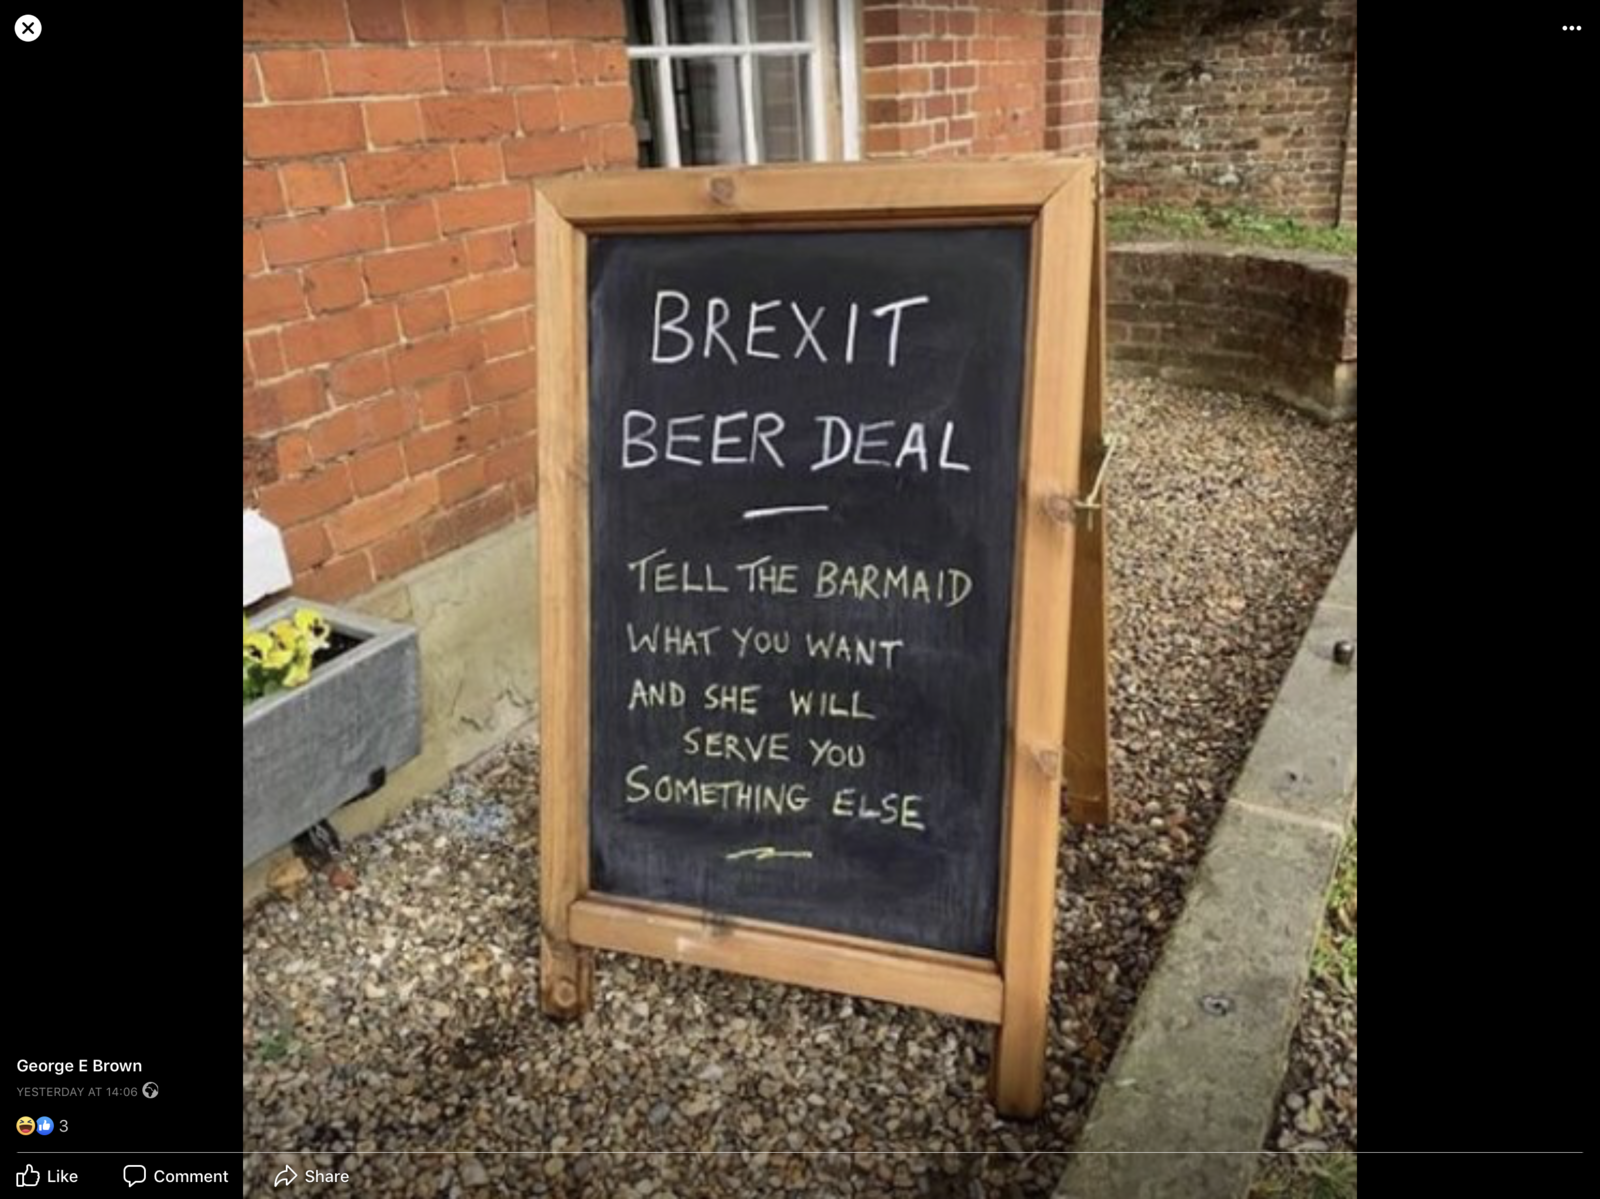 BREXIT
BEER DEAL
TELL THE BARMAID
WHAT YOU WANT
AND SHE WILL
SERVE YOU
SOMETHING ELSE
George E Brown
YESTERDAY AT 14:06
3
Like Comment Share